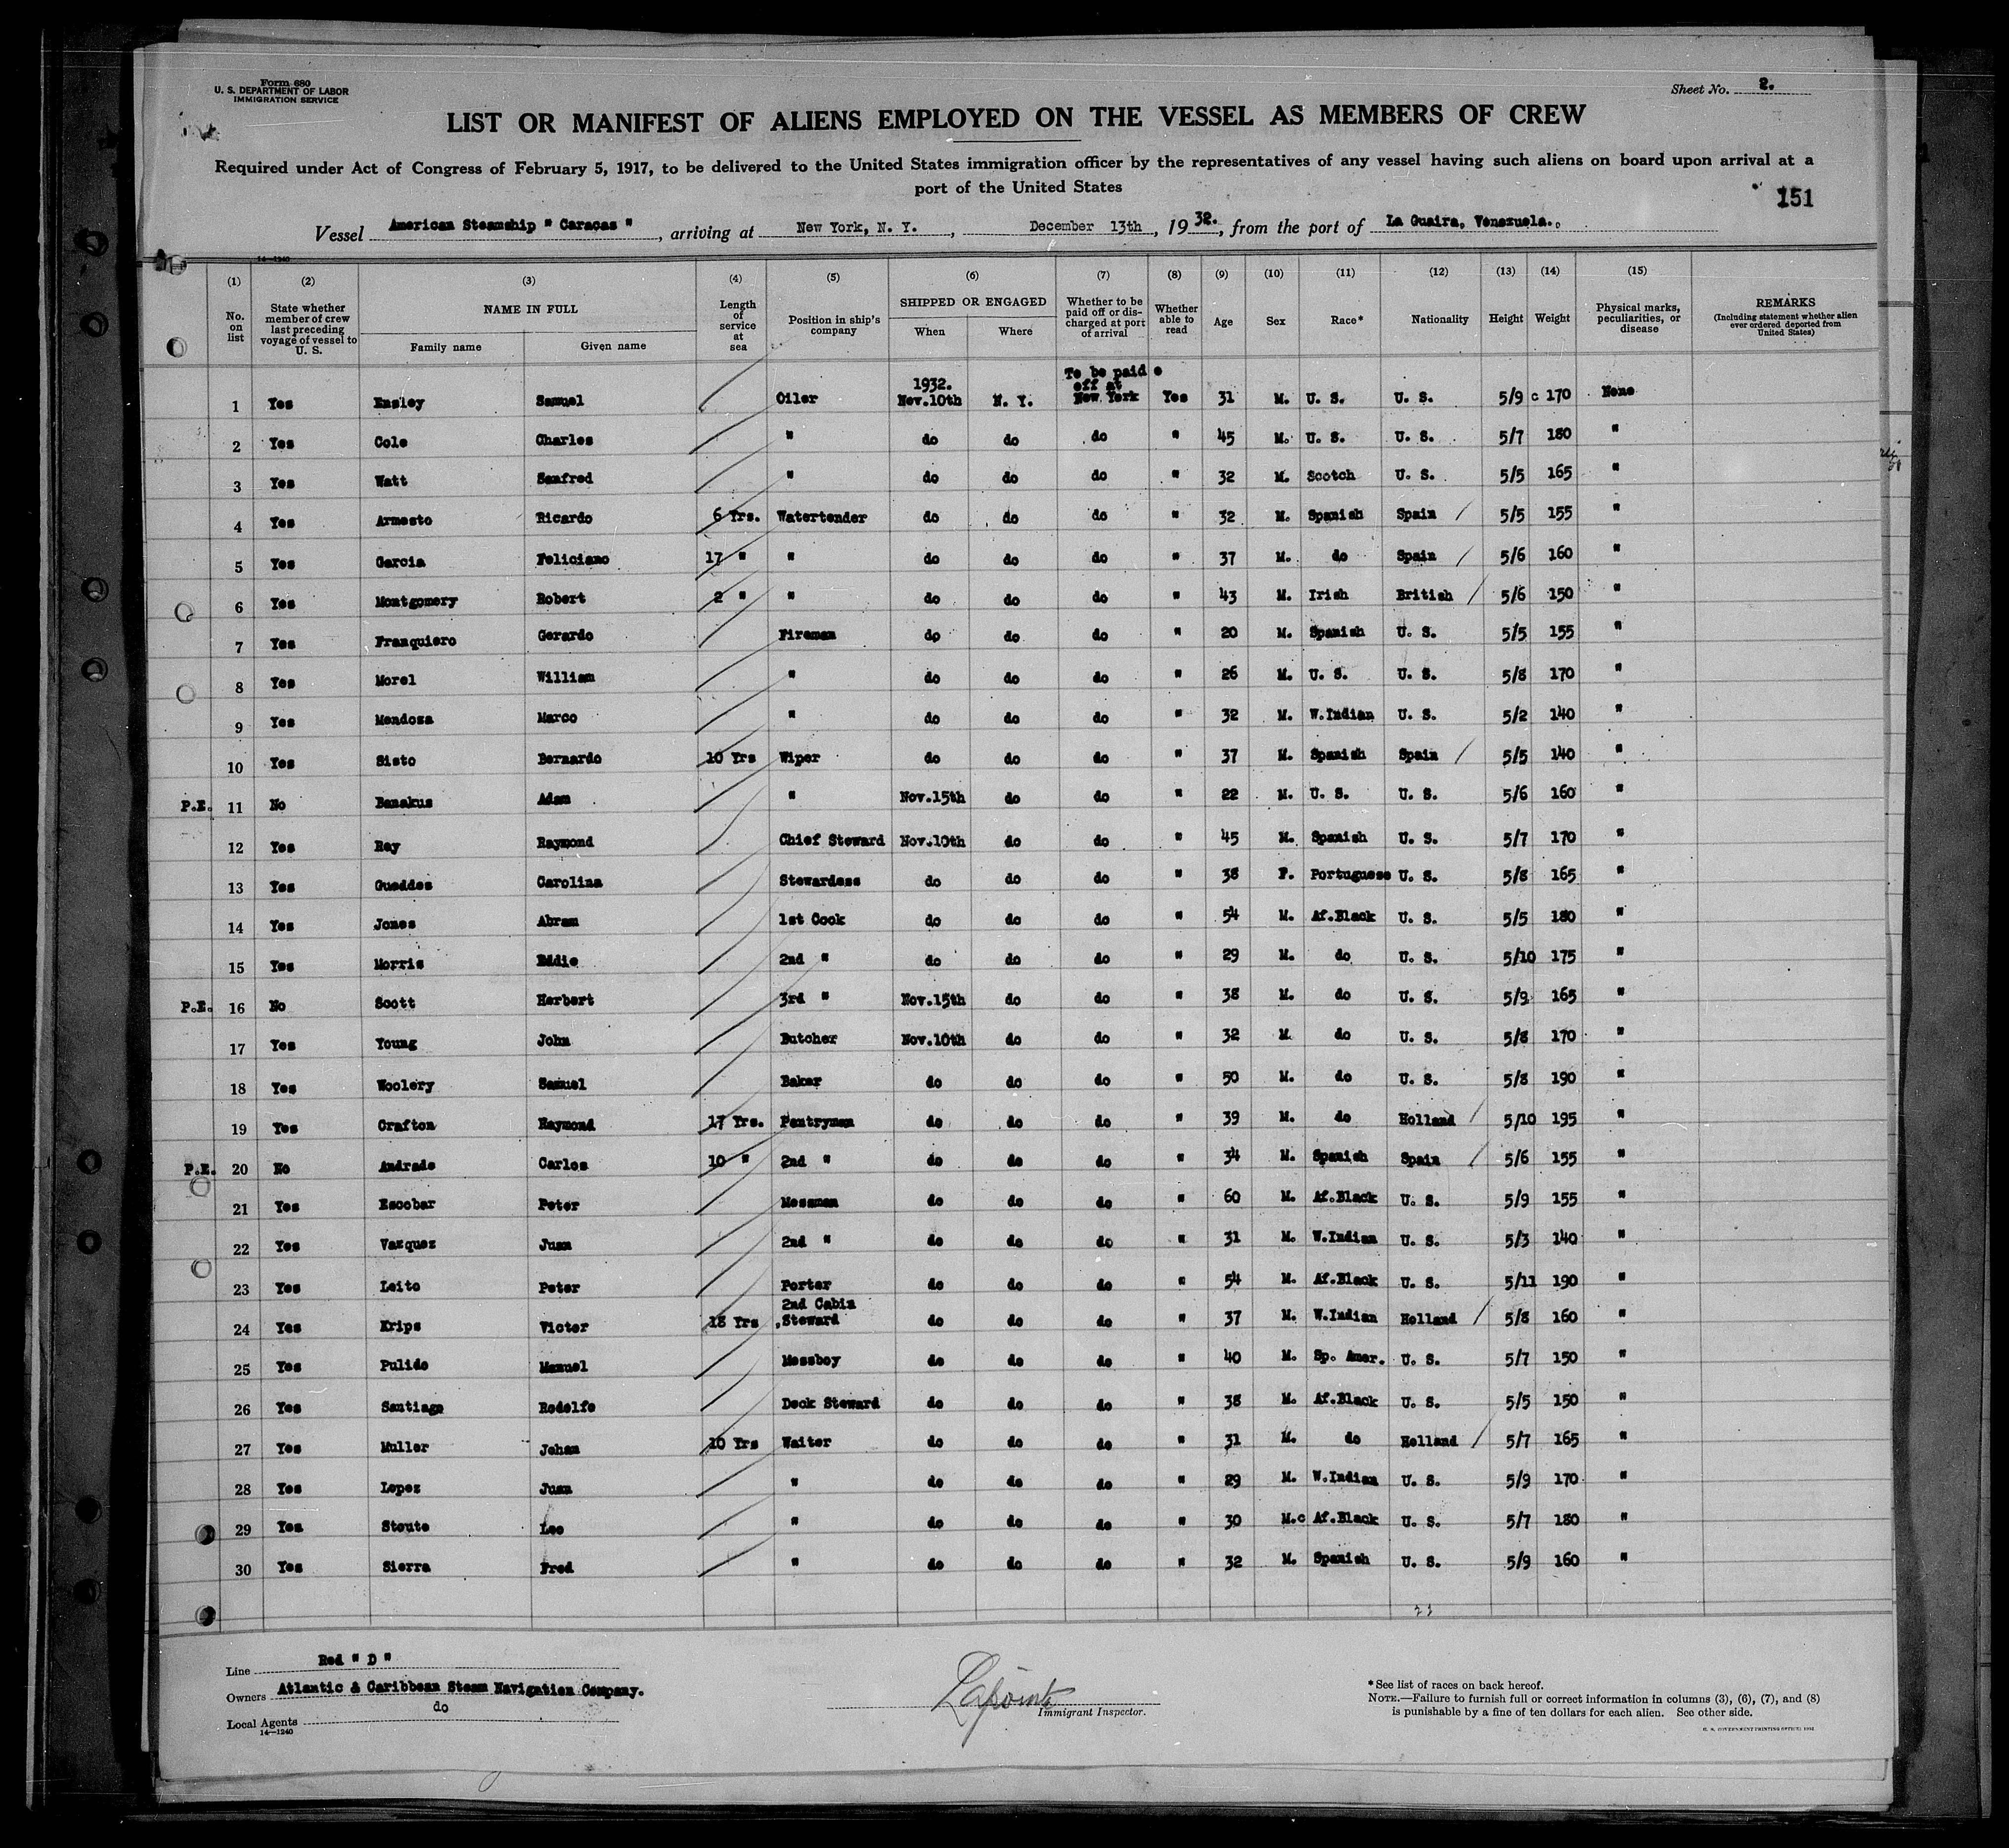 Form 680
U. S. DEPARTMENT OF LABOR
IMMIGRATION SERVICE
Sheet No. 2.
LIST OR MANIFEST OF ALIENS EMPLOYED ON THE VESSEL AS MEMBERS OF CREW
Required under Act of Congress of February 5, 1917, to be delivered to the United States immigration officer by the representatives of any vessel having such aliens on board upon arrival at a
port of the United States
151
Vessel American Steamship " Caracas ", arriving at New York, N. Y., December 13th, 1932., from the port of La Guaira, Venezuela.
14—1240
(1) No. on list
(2) State whether member of crew last preceding voyage of vessel to U. S.
(3) NAME IN FULL Family name Given name
(4) Length of service at sea
(5) Position in ship's company
(6) SHIPPED OR ENGAGED When Where
(7) Whether to be paid off or discharged at port of arrival
(8) Whether able to read
(9) Age
(10) Sex
(11) Race*
(12) Nationality
(13) Height
(14) Weight
(15) Physical marks, peculiarities, or disease
REMARKS (Including statement whether alien ever ordered deported from United States)
1 Yes Ensley Samuel Oiler 1932. Nov.10th N. Y. To be paid off at New York Yes 31 M. U. S. U. S. 5/9 170 None
2 Yes Cole Charles " do do do " 45 M. U. S. U. S. 5/7 180 "
3 Yes Watt Sanfred " do do do " 32 M. Scotch U. S. 5/5 165 "
4 Yes Armesto Ricardo 6 Yrs. Watertender do do do " 32 M. Spanish Spain / 5/5 155 "
5 Yes Garcia Feliciano 17 " " do do do " 37 M. do Spain / 5/6 160 "
6 Yes Montgomery Robert 2 " " do do do " 43 M. Irish British / 5/6 150 "
7 Yes Franquiero Gerardo Fireman do do do " 20 M. Spanish U. S. 5/5 155 "
8 Yes Morel William " do do do " 26 M. U. S. U. S. 5/8 170 "
9 Yes Mendoza Marco " do do do " 32 M. W.Indian U. S. 5/2 140 "
10 Yes Sisto Bernardo 10 Yrs Wiper do do do " 37 M. Spanish Spain / 5/5 140 "
P.E. 11 No Banakus Adam " Nov.15th do do " 22 M. U. S. U. S. 5/6 160 "
12 Yes Rey Raymond Chief Steward Nov.10th do do " 45 M. Spanish U. S. 5/7 170 "
13 Yes Gueddes Carolina Stewardess do do do " 38 F. Portuguese U. S. 5/8 165 "
14 Yes Jones Abram 1st Cook do do do " 54 M. Af.Black U. S. 5/5 180 "
15 Yes Morris Eddie 2nd " do do do " 29 M. do U. S. 5/10 175 "
P.E. 16 No Scott Herbert 3rd " Nov.15th do do " 38 M. do U. S. 5/9 165 "
17 Yes Young John Butcher Nov.10th do do " 32 M do U. S. 5/8 170 "
18 Yes Woolery Samuel Baker do do do " 50 M. do U. S. 5/8 190 "
19 Yes Crafton Raymond 17 Yrs. Pantryman do do do " 39 M. do Holland / 5/10 195 "
P.E. 20 No Andrade Carlos 10 " 2nd " do do do " 34 M. Spanish Spain / 5/6 155 "
21 Yes Escobar Peter Messman do do do " 60 M. Af.Black U. S. 5/9 155 "
22 Yes Vazquez Juan 2nd " do do do " 31 M. W.Indian U. S. 5/3 140 "
23 Yes Leito Peter Porter do do do " 54 M. Af.Black U. S. 5/11 190 "
24 Yes Krips Victor 18 Yrs 2nd Cabin Steward do do do " 37 M. W.Indian Holland / 5/8 160 "
25 Yes Pulido Manuel Messboy do do do " 40 M. Sp. Amer. U. S. 5/7 150 "
26 Yes Santiago Rodolfo Deck Steward do do do " 38 M. Af.Black U. S. 5/5 150 "
27 Yes Muller Johan 10 Yrs Waiter do do do " 31 M. do Holland / 5/7 165 "
28 Yes Lopez Juan " do do do " 29 M. W.Indian U. S. 5/9 170 "
29 Yes Stoute Leo " do do do " 30 M. Af.Black U. S. 5/7 180 "
30 Yes Sierra Fred " do do do " 32 M. Spanish U. S. 5/9 160 "
Line Red " D "
Owners Atlantic & Caribbean Steam Navigation Company.
Local Agents do
14—1240
Lapointe
Immigrant Inspector.
*See list of races on back hereof.
NOTE.—Failure to furnish full or correct information in columns (3), (6), (7), and (8)
is punishable by a fine of ten dollars for each alien. See other side.